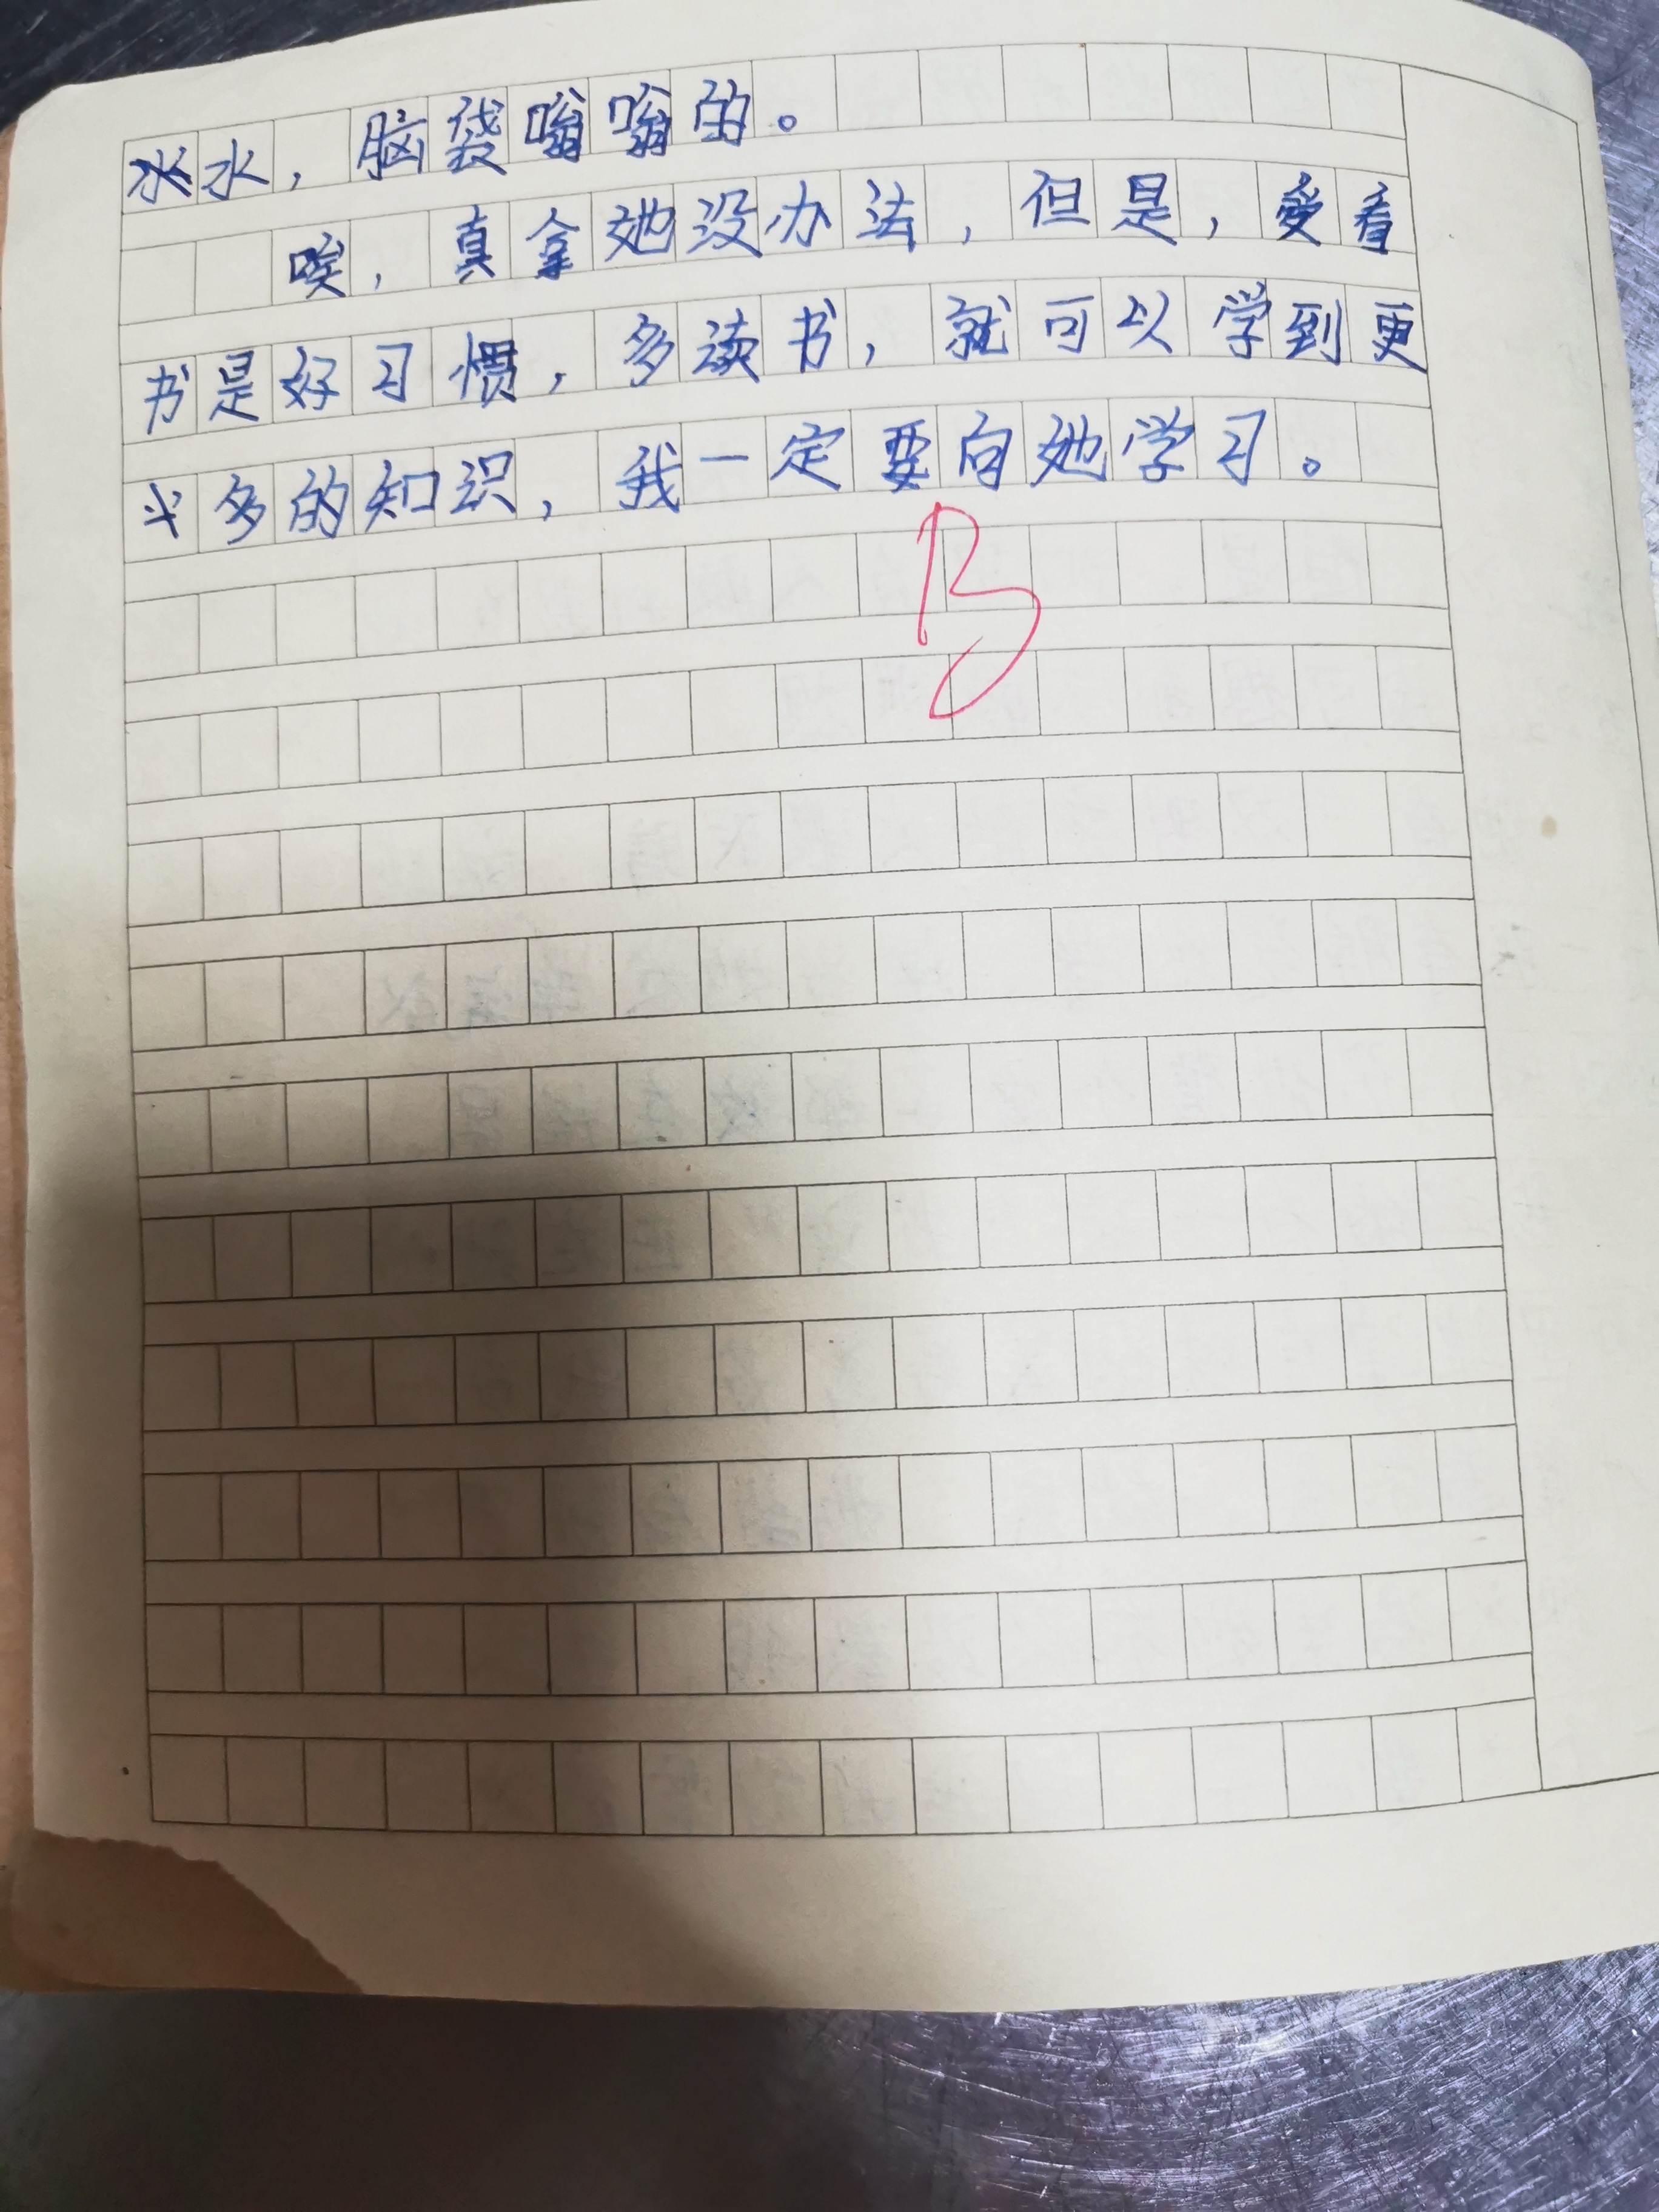 水水，脑袋嗡嗡的。
唉，真拿她没办法，但是，爱看
书是好习惯，多读书，就可以学到更
多的知识，我一定要向她学习。
B